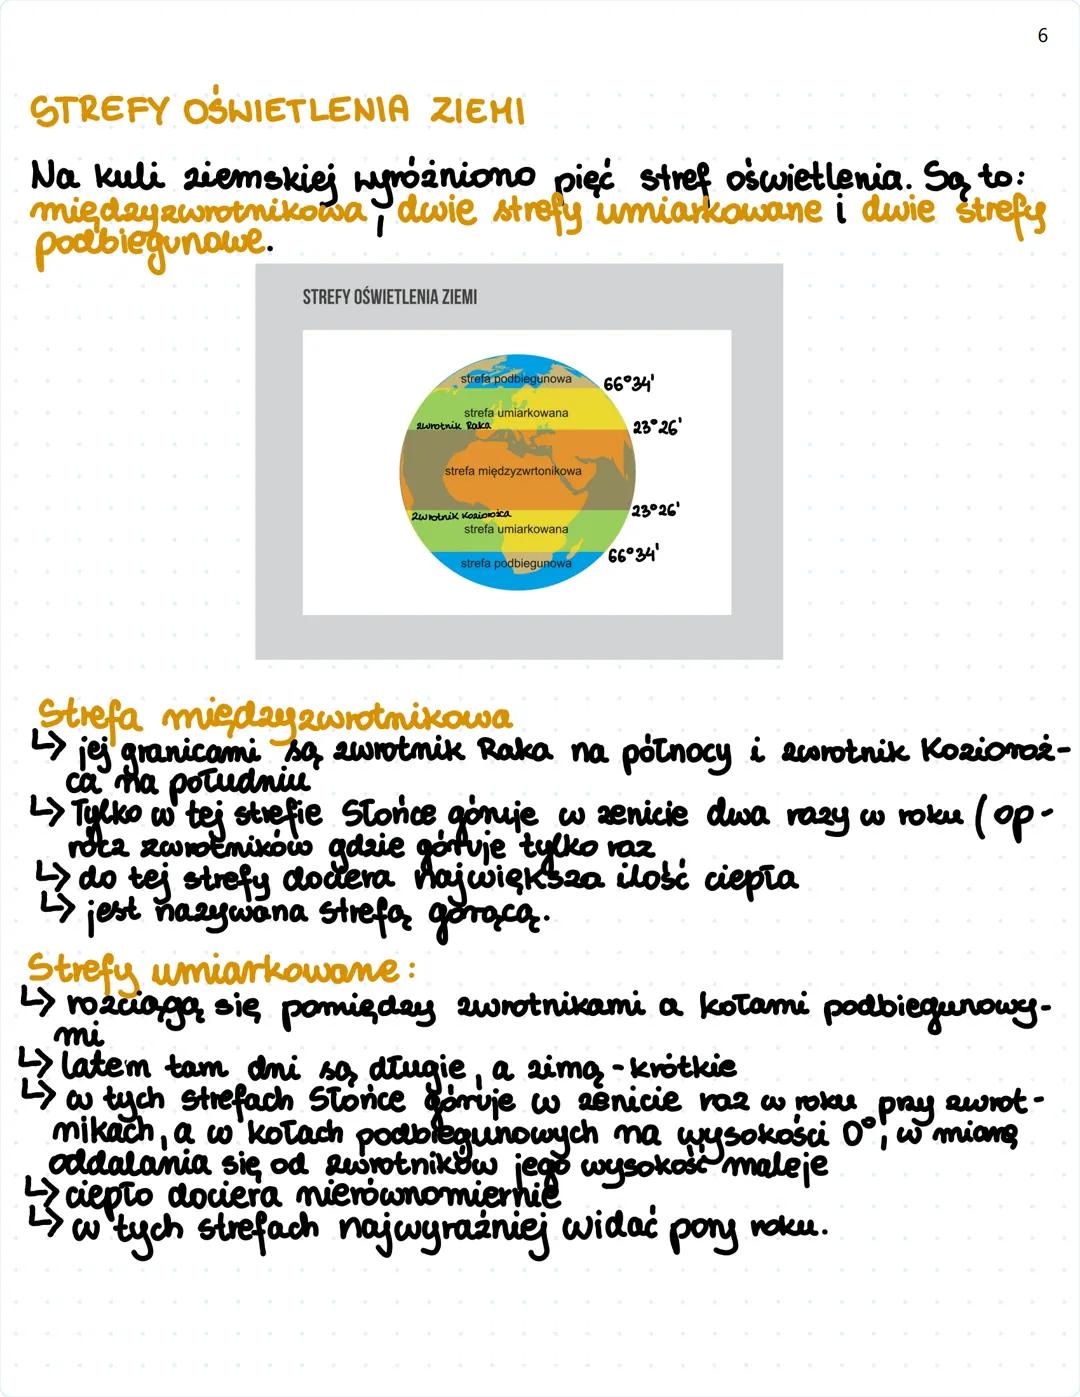 6
STREFY OŚWIETLENIA ZIEMI
Na kuli ziemskiej wyróżniono pięć stref oświetlenia. Są to:
międzyzwrotnikowa, dwie strefy umiarkowane i dwie strefy
podbiegunowe.
STREFY OŚWIETLENIA ZIEMI
strefa podbiegunowa 66°34'
strefa umiarkowana
zwrotnik Raka 23°26'
strefa międzyzwrtonikowa
zwrotnik Koziorożca 23°26'
strefa umiarkowana
strefa podbiegunowa 66°34'
Strefa międzyzwrotnikowa
↳ jej granicami są zwrotnik Raka na północy i zwrotnik Kozioroż-
ca na południu
↳ Tylko w tej strefie Słońce góruje w zenicie dwa razy w roku (op-
rócz zwrotników gdzie góruje tylko raz
↳ do tej strefy dociera największa ilość ciepła
↳ jest nazywana strefą gorącą.
Strefy umiarkowane:
↳ rozciągą się pomiędzy zwrotnikami a kołami podbiegunowy-
mi
↳ latem tam dni są długie, a zimą - krótkie
↳ w tych strefach Słońce góruje w zenicie raz w roku pray zwrot-
nikach, a w kołach podbiegunowych na wysokości 0°, w mianę
oddalania się od zwrotników jego wysokość maleje
↳ ciepło dociera nierównomiernie
↳ w tych strefach najwyraźniej widać pory roku.